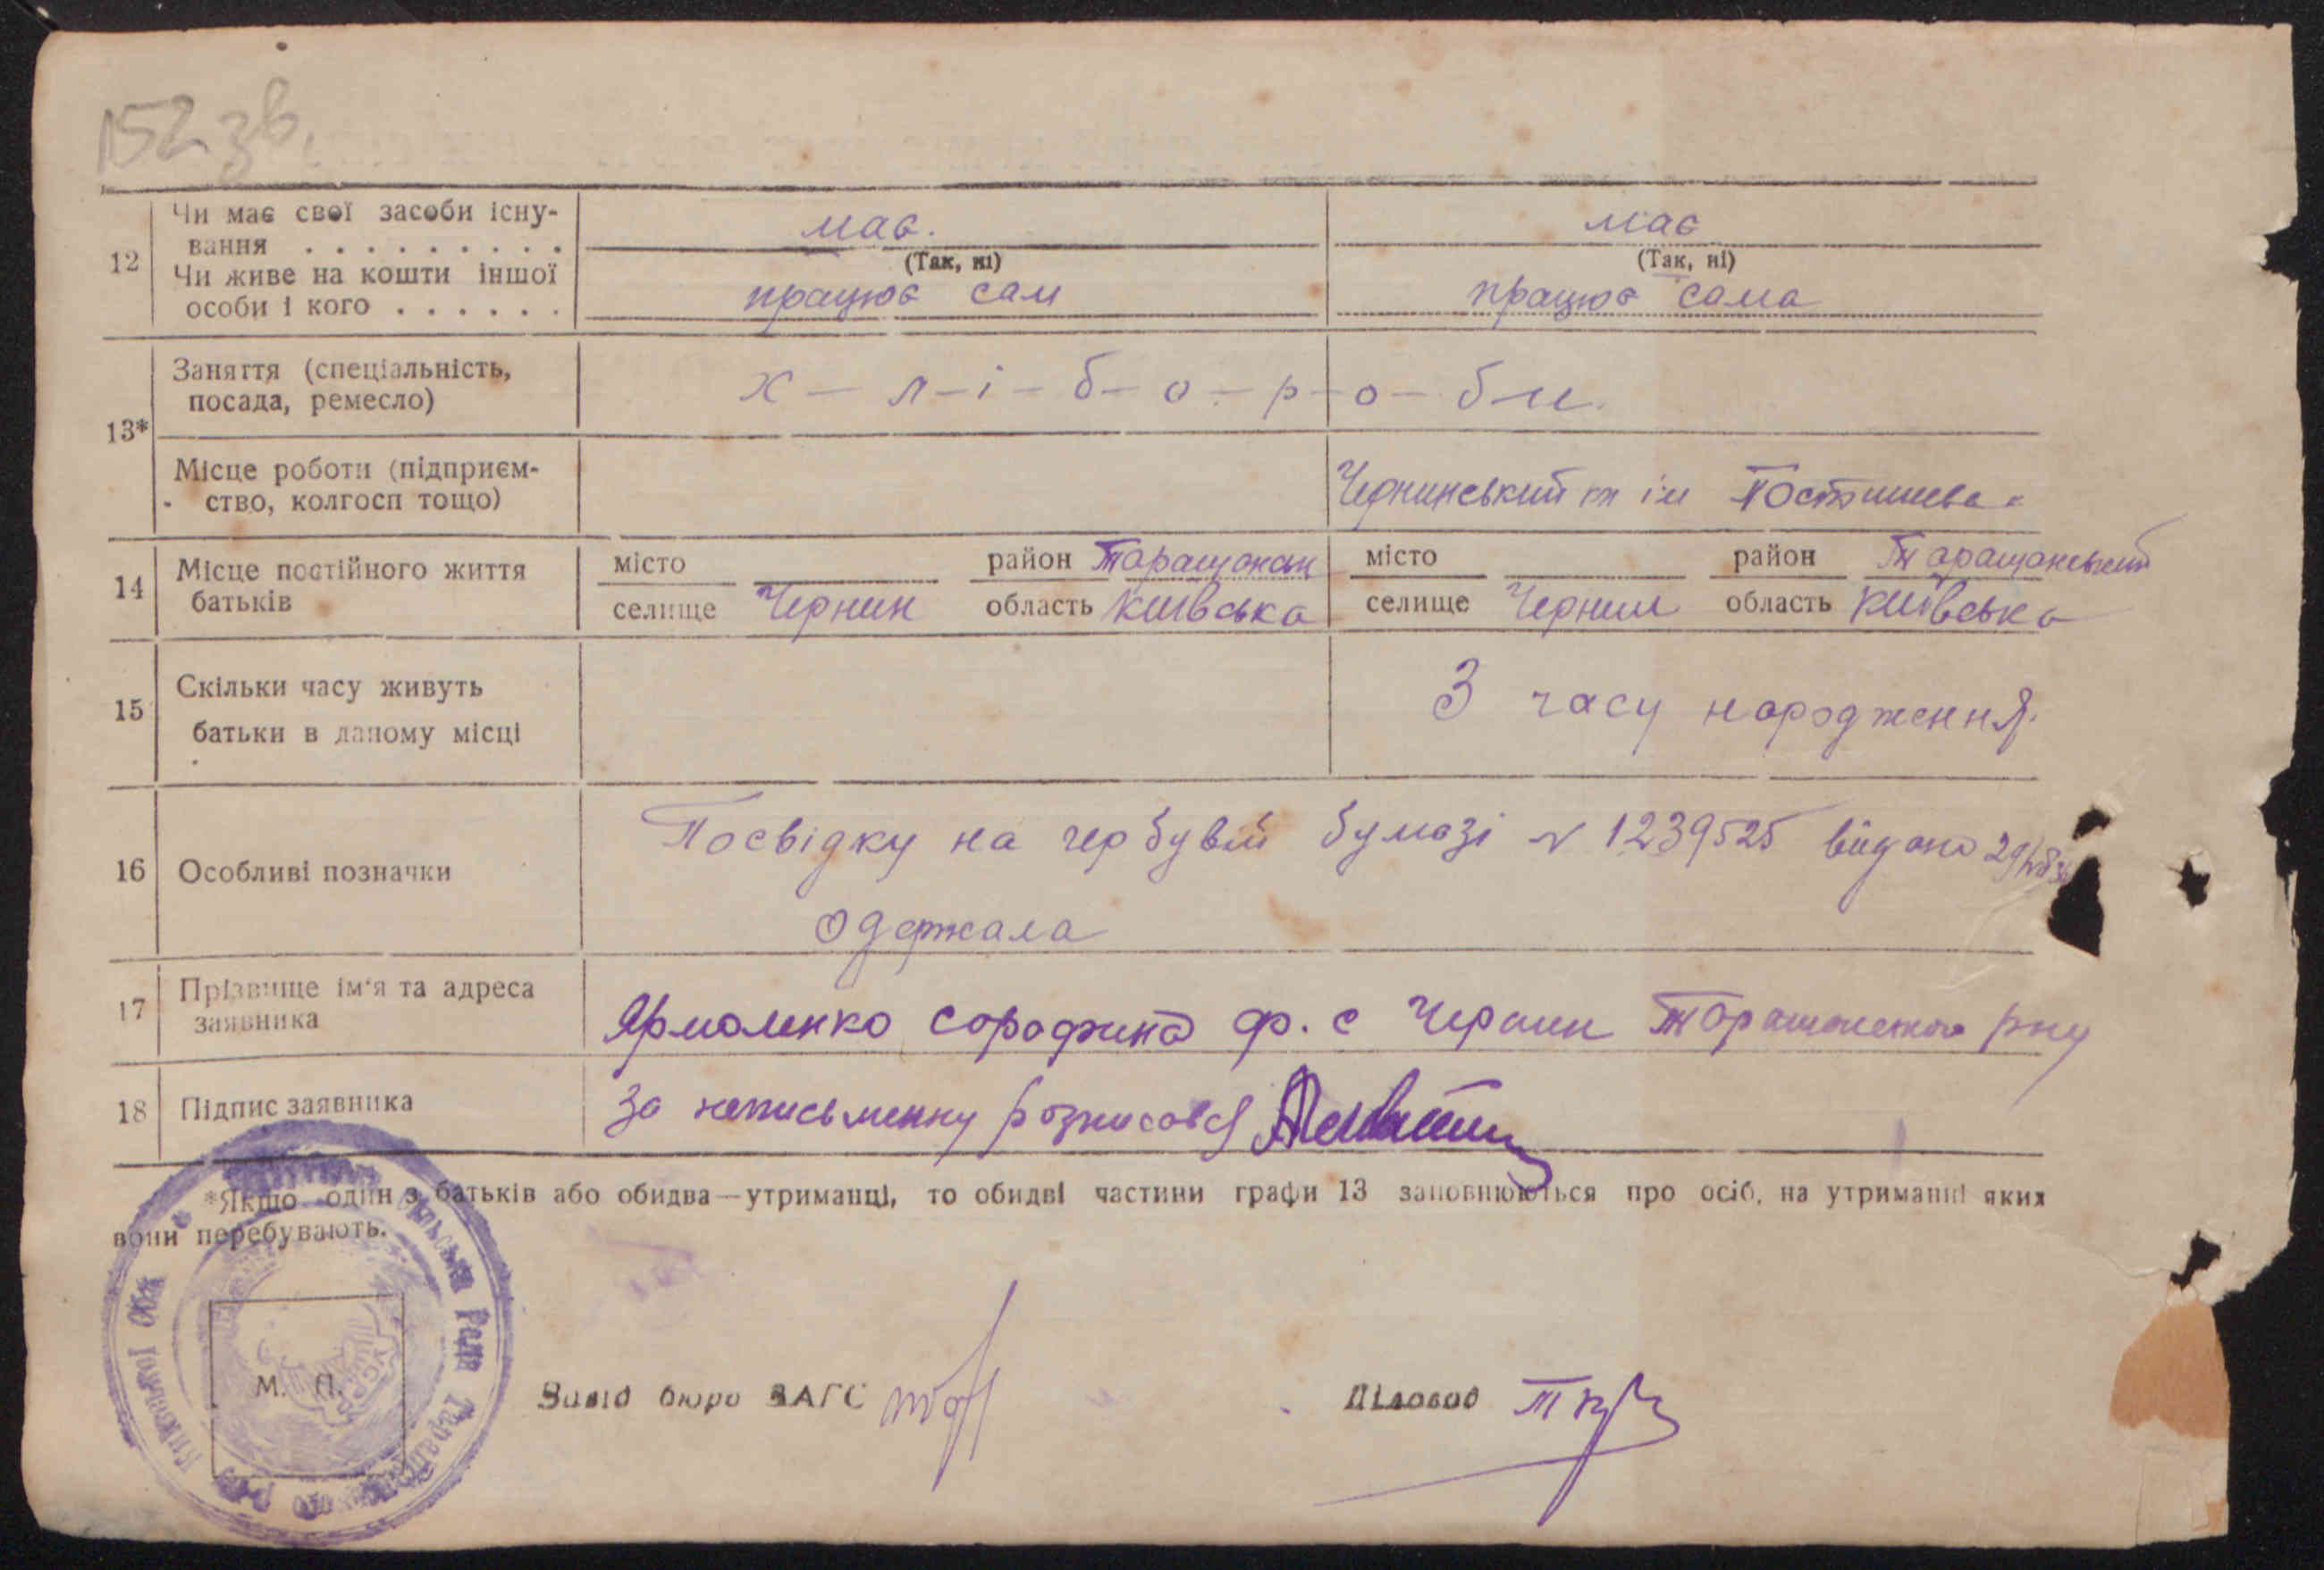 152 зв.
12 Чи має свої засоби існу-
вання . . . . . . . . . має. має
(Так, ні) (Так, ні)
Чи живе на кошти іншої
особи і кого . . . . . . працює сам працює сама
13* Заняття (спеціальність,
посада, ремесло) х-л-і-б-о-р-о-б-и.
Місце роботи (підприєм-
ство, колгосп тощо) Чернинський ім Постишева
14 Місце постійного життя
батьків
місто район Таращанськ місто район Таращанський
селище Чернин область Київська селище Чернин область Київська
15 Скільки часу живуть
батьки в даному місці З часу народження.
16 Особливі позначки Посвідку на бумазі № 1239525 видано
одержала
17 Прізвище ім'я та адреса
заявника Ярмоленко ф. с Чернин рну
18 Підпис заявника За неписьменну розписався
*Якщо один з батьків або обидва—утриманці, то обидві частини графи 13 заповнюються про осіб, на утриманні яких
вони перебувають.
М. П.
Завід бюро ЗАГС Діловод
Сільська Рада Таращанського Р-ну Київської Обл.
УСРР